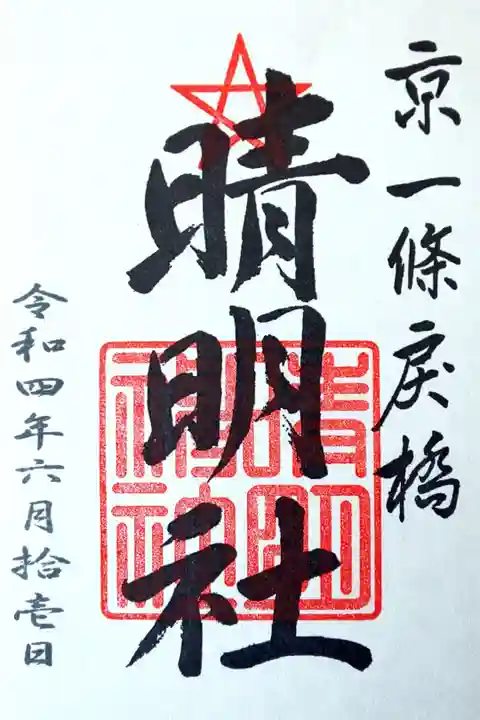 京一條戻橋
晴明社
晴明神社
令和四年六月拾壱日